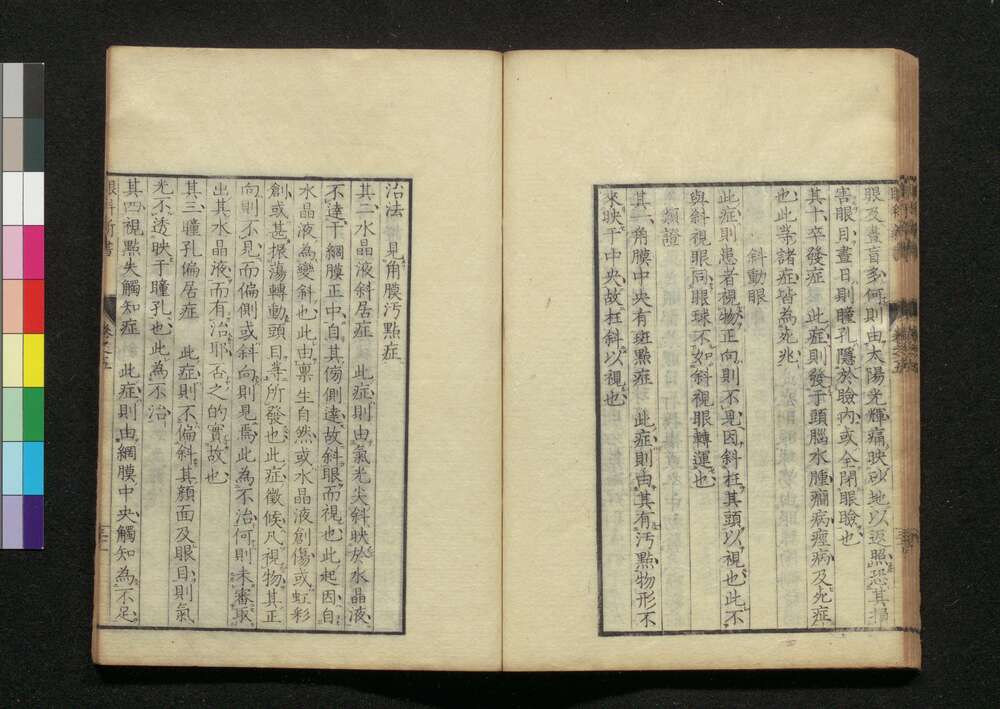 眼及晝盲多何則由太陽光輝痛映砂地以返照恐其損
害眼目晝日則瞳孔隱於瞼內或全閉眼瞼也
其十卒發症 此症則發于頭腦水腫癎病瘦病及死症
也此等諸症皆為死兆
斜動眼
此症則患者視物正向則不見因斜枉其頭以視也此不
與斜視眼同眼球不如斜視眼轉運也
類證
其一角膜中央有斑點症 此症則由其有汚點物形不
來映于中央故枉斜以視也
治法 見角膜汚點症
其二水晶液斜居症 此症則由氣光尖斜映於水晶液
不達于網膜正中自其傍側達故斜眼而視也此起因自
水晶液為變斜也此由稟生自然或水晶液創傷或虹彩
創或甚振蕩轉動頭目等所發也此症徵候凡視物其正
向則不見而偏側或斜向則見焉此為不治何則未審取
出其水晶液而有治耶否之的實故也
其三瞳孔偏居症 此症則不偏斜其顏面及眼目則氣
光不透映于瞳孔也此為不治
其四視點失觸知症 此症則由網膜中央觸知為不足
眼科新書 卷之五